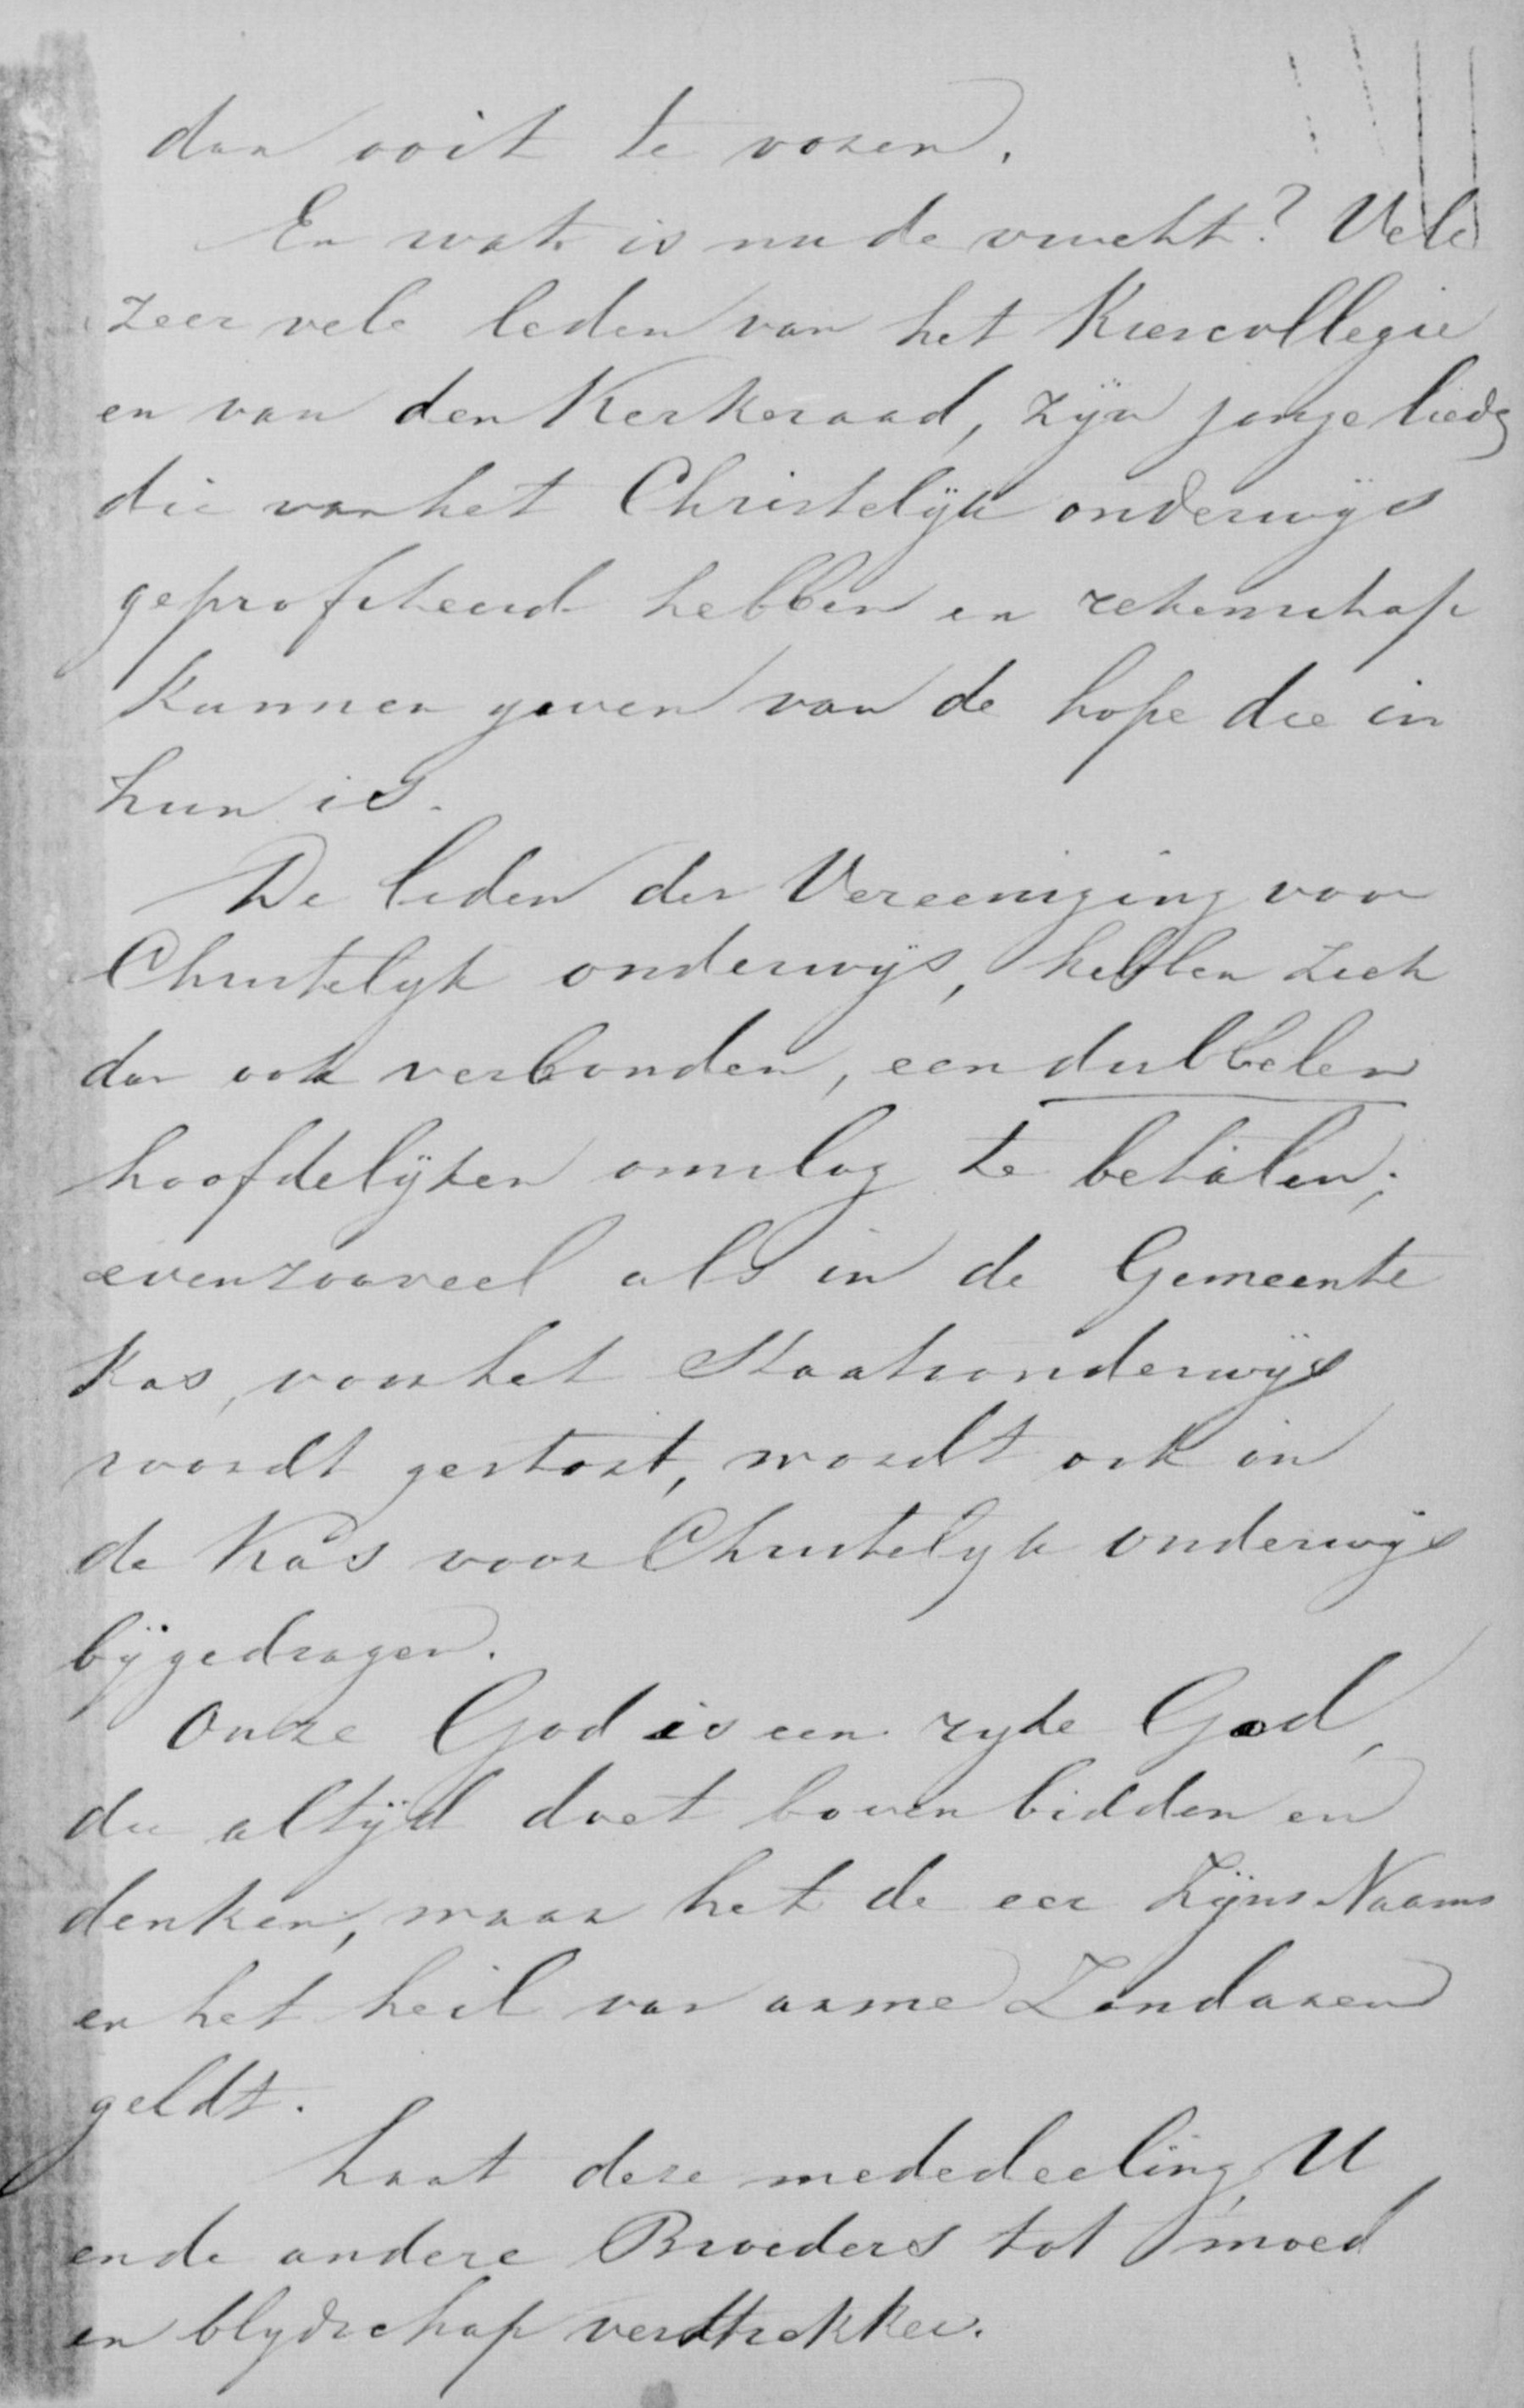 dan ooit te voren.
En wat is nu de vrucht? Vele
zeer vele leden van het Kiescollegie
en van den Kerkeraad, zijn jonge lieden
die van het Christelijk onderwijs
geprofiteerd hebben en rekenschap
kunnen geven van de hope die in
hun is.
De leden der Vereeniging voor
Christelyk onderwijs, hebben zich
dan ook verbonden, een dubbelen
hoofdelijken omslag te betalen;
evenzooveel als in de Gemeente
Kas, voor het Staatsonderwijs
wordt gestort, wordt ook in
de Kas voor Christelyk onderwijs
bijgedragen.
Onze God is een ryke God,
die altijd doet boven bidden en
denken, waar het de eer Zijns Naams
en het heil van arme Zondaren
geldt.
Laat deze mededeeling, U
en de andere Broeders tot moed
en blydschap verstrekken.